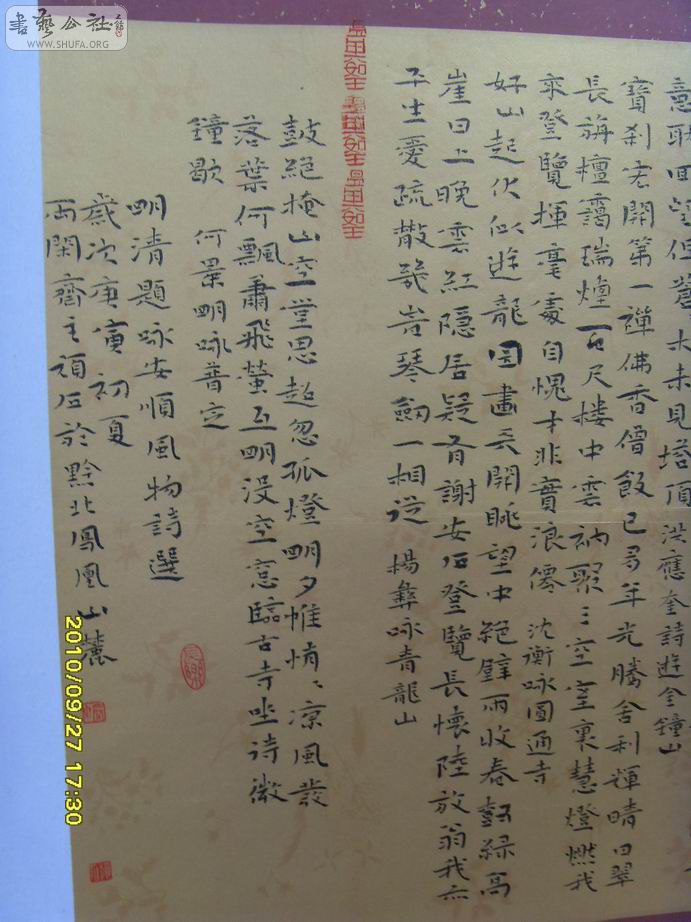 意耿回望但蒼木未見塔頂洪應奎詩遊金鐘山
寶刹宏開第一禪佛香僧飯已多年光騰舍利輝晴日翠
長旃檀靄瑞煙百尺樓中雲衲聚三空室裏慧燈燃我
來登覽揮毫處自愧才非實浪僊 沈衡咏圓通寺
好山起伏似遊龍圖畫天開眺望中絕壁雨收春樹綠高
崖日上晚雲紅隱居疑有謝安石登覽長懷陸放翁我亦
平生愛疏散幾時琴劍一相從 楊彝咏青龍山
鼓絕掩山空堂思超忽孤燈明夕帷悄悄涼風發
落葉何飄蕭飛螢互明沒空窗臨古寺坐待微
鐘歇 何景明咏普定
明清題咏安順風物詩選
歲次庚寅初夏
兩閑齋主頑石於黔北鳳凰山麓
書藝公社
WWW.SHUFA.ORG
2010/09/27 17:30